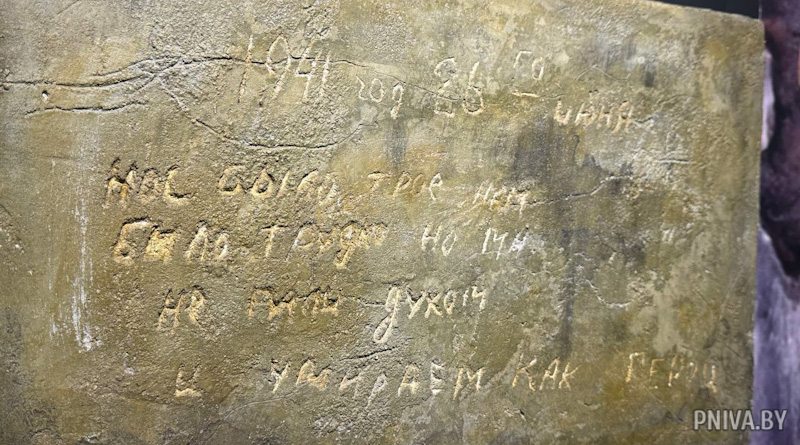 1941 год 26 го
июня
нас было трое нам
было трудно но мы
не пали духом
и умираем как герои
PNIVA.BY